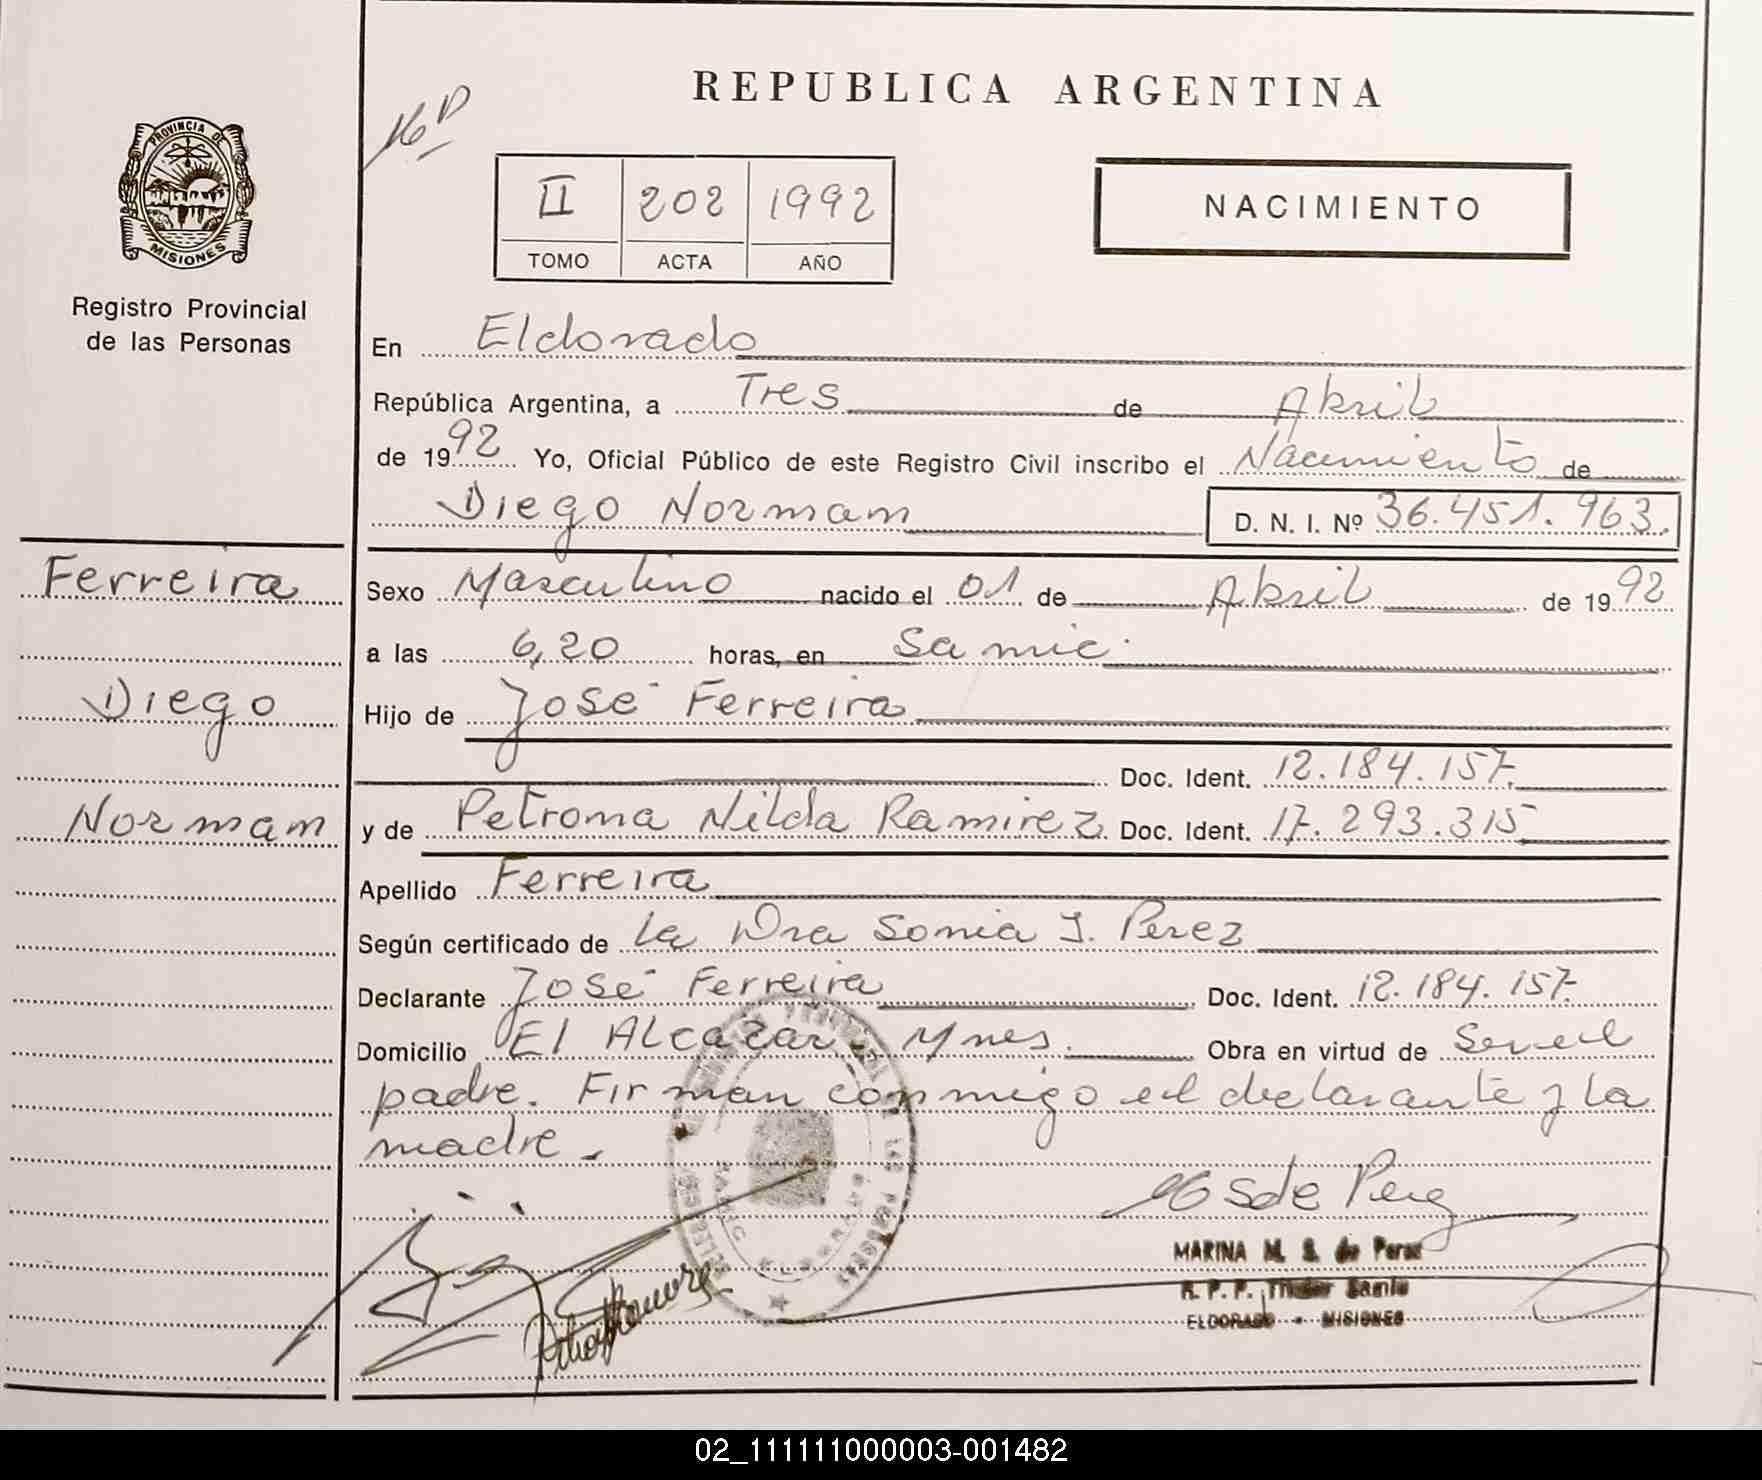 REPUBLICA ARGENTINA
PROVINCIA DE
MISIONES
Registro Provincial
de las Personas
II 202 1992
TOMO ACTA AÑO
NACIMIENTO
En Eldorado
República Argentina, a Tres de Abril
de 1992 Yo, Oficial Público de este Registro Civil inscribo el Nacimiento de
Diego Normam D. N. I. Nº 36.451.963.
Ferreira
Diego
Normam
Sexo Masculino nacido el 01 de Abril de 1992
a las 6,20 horas, en Samic.
Hijo de José Ferreira
Doc. Ident. 12.184.157.
y de Petrona Nilda Ramirez Doc. Ident. 17.293.315
Apellido Ferreira
Según certificado de la Dra Sonia J. Perez
Declarante José Ferreira Doc. Ident. 12.184.157.
Domicilio El Alcazar - Mnes. Obra en virtud de Ser el
padre. Firman conmigo el declarante y la
madre.-
MARINA M. S. de Perez
R. P. P. Titular Samic
ELDORADO - MISIONES
02_111111000003-001482